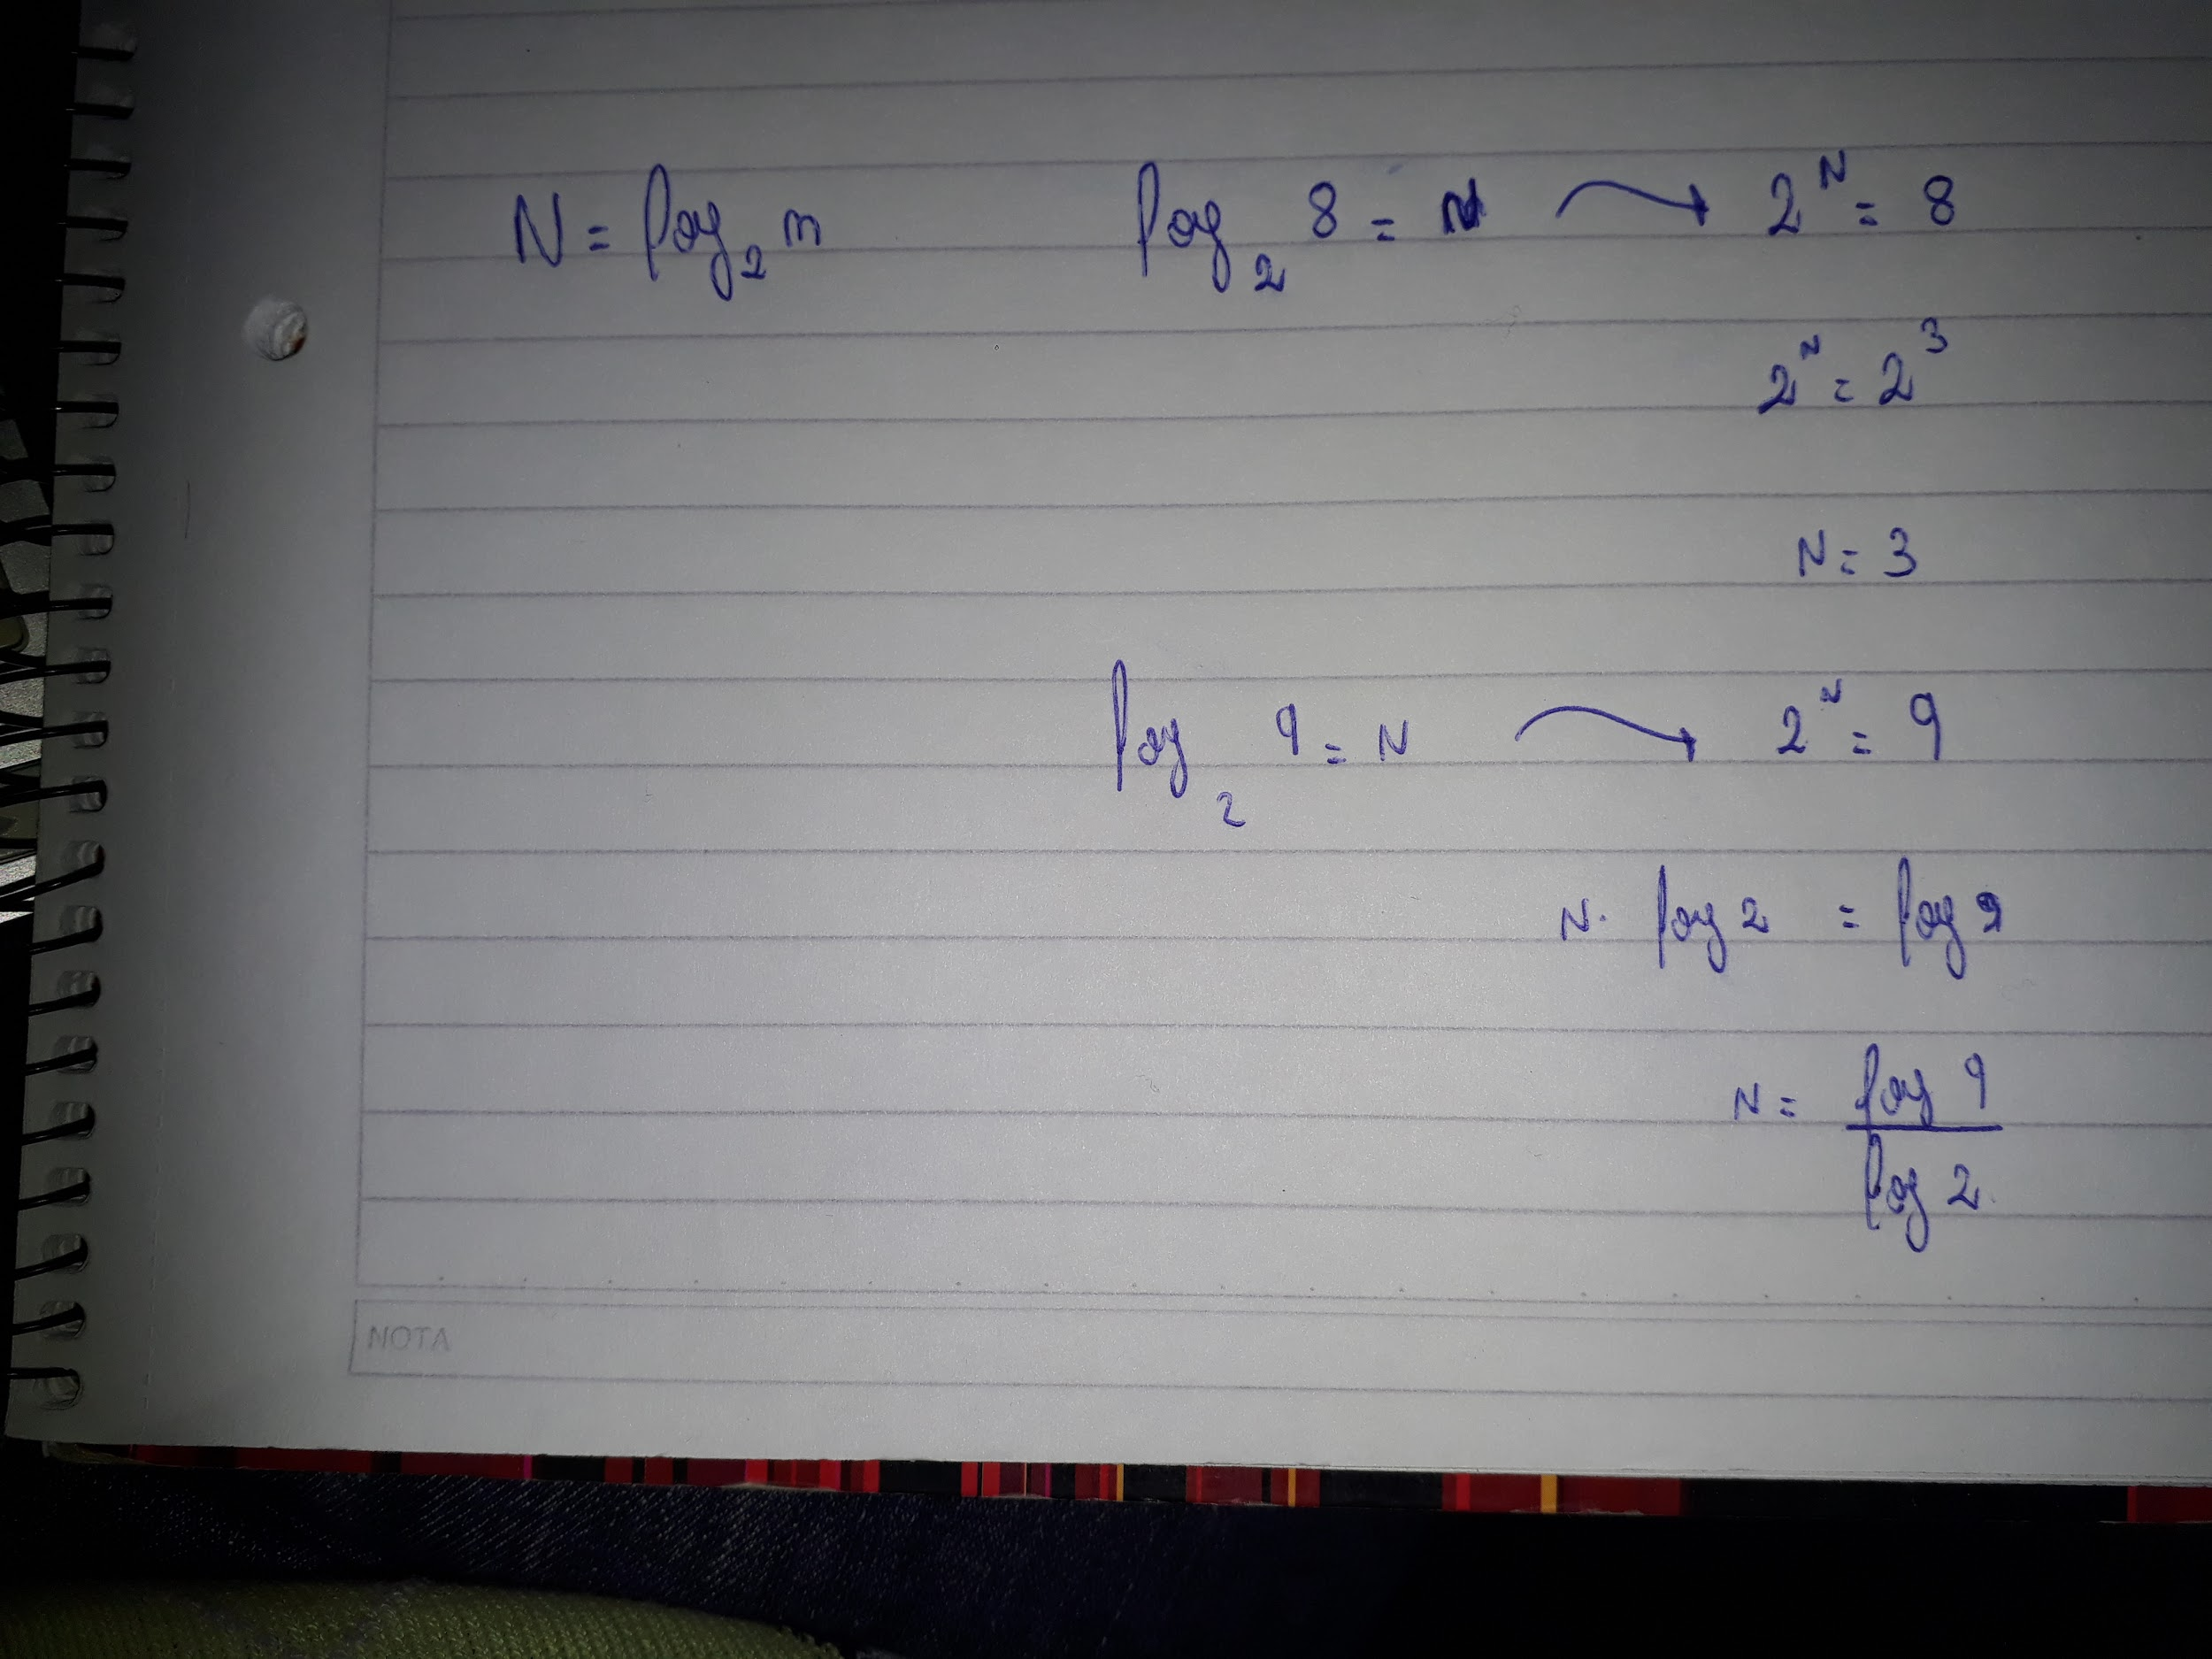 N = log₂ m log₂ 8 = N → 2ᴺ = 8
2ᴺ = 2³
N = 3
log₂ 9 = N → 2ᴺ = 9
N · log 2 = log 9
N = log 9 / log 2
NOTA